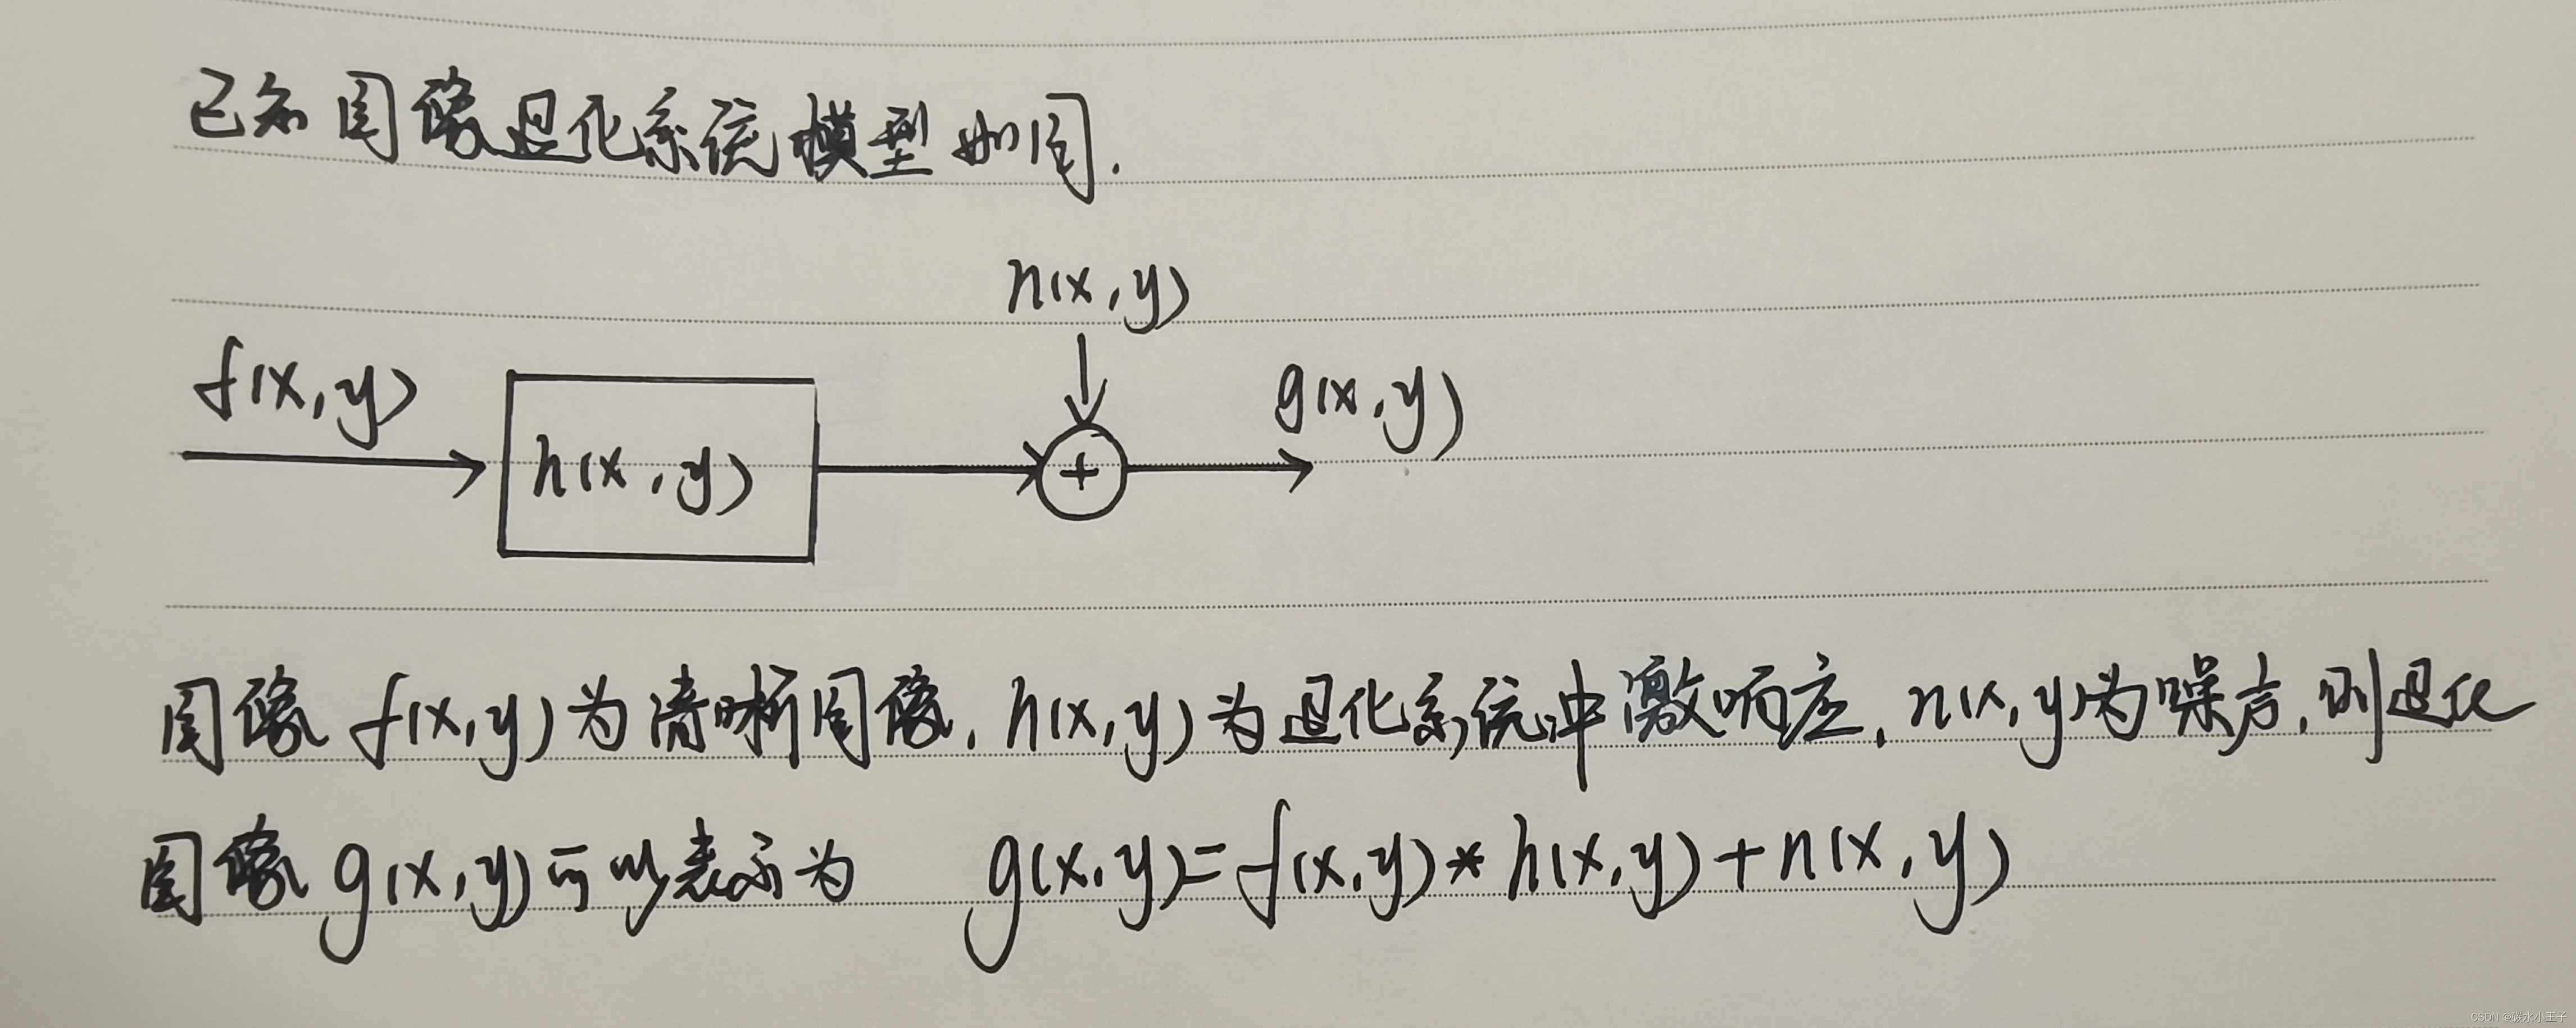 已知图像退化系统模型如图.
n(x,y)
f(x,y)
g(x,y)
h(x,y)
+
图像 f(x,y)为清晰图像, h(x,y)为退化系统冲激响应, n(x,y)为噪声, 则退化
图像 g(x,y)可以表示为 g(x,y)=f(x,y)*h(x,y)+n(x,y)